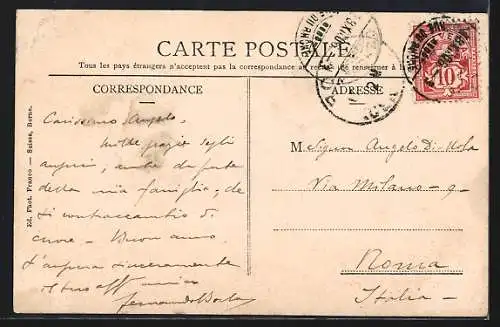 CARTE POSTALE
Tous les pays étrangers n'acceptent pas la correspondance au recto, se renseigner à la
CORRESPONDANCE
ADRESSE
Carissimo Angelo,
Molte grazie degli
auguri, anche da parte
della mia famiglia, che
si contraccambio di
cuore - Buon anno
t'auguro sinceramente
il tuo aff amico
Fernando
M. Signor Angelo Di Nola
Via Milano - 9 -
Roma
Italia -
Ed. Phot. Franco - Suisse, Berne.
10